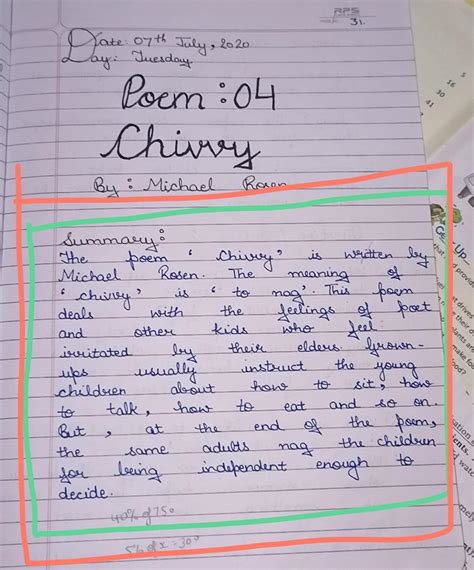 RPS
31.
Date: 07th July, 2020
Day: Tuesday
Poem: 04
Chivvy
By: Michael Rosen
Summary:
The poem 'Chivvy' is written by
Michael Rosen. The meaning of
'chivvy' is 'to nag'. This poem
deals with the feelings of poet
and other kids who feel
irritated by their elders. Grown-
ups usually instruct the young
children about how to sit, how
to talk, how to eat and so on.
But, at the end of the poem,
the same adults nag the children
for being independent enough to
decide.
40% of 150
5% of x = 300
16
30
41
5
Up